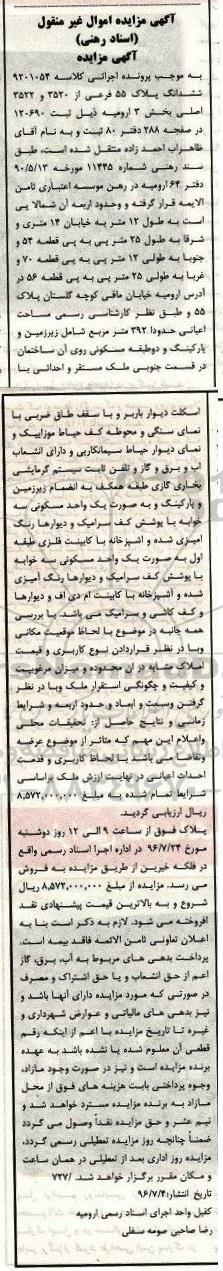 آگهی مزایده اموال غیر منقول
(اسناد رهنی)
آگهی مزایده
به موجب پرونده اجرائی کلاسه ۹۲۰۱۰۵۴
ششدانگ پلاک ۵۵ فرعی از ۳۵۲۰ و ۳۵۲۲
اصلی بخش ۳ ارومیه ذیل ثبت ۱۲۰۶۹۰
در صفحه ۲۸۸ دفتر ۸۰ ثبت و به نام آقای
طاهراب احمد زاده منتقل شده است، طبق
سند رهنی شماره ۱۱۴۴۵ مورخه ۹۰/۵/۱۳
دفتر ۶۴ ارومیه در رهن موسسه اعتباری ثامن
الایمه قرار گرفته و حدود اربعه آن شمالا پی
است به طول ۱۲ متر به خیابان ۱۴ متری و
شرقا به طول ۲۵ متر پی به پی قطعه ۵۴ و
جنوبا به طولی ۱۲ متر پی به پی قطعه ۷۰ و
غربا به طولی ۲۵ متر پی به پی قطعه ۵۶ در
آدرس ارومیه خیابان مافی کوچه گلستان پلاک
۵۵ و طبق نظر کارشناسی رسمی مساحت
اعیانی حدودا ۳۹۲ متر مربع شامل زیرزمین و
پارکینگ و دوطبقه مسکونی روی آن ساختمان
در قسمت جنوبی ملک مستقر و احداثی با
اسکلت دیوار باربر و با سقف طاق ضربی با
نمای سنگی و محوطه کف حیاط موزاییک و
نمای دیوار حیاط سیمانکاری و دارای انشعاب
آب و برق و گاز و تلفن ثابت سیستم گرمایشی
بخاری گازی طبقه همکف به انضمام زیرزمین
و پارکینگ و به صورت یک واحد مسکونی سه
خوابه با پوشش کف سرامیک و دیوارها رنگ
آمیزی شده و آشپزخانه با کابینت فلزی طبقه
اول به صورت یک واحد مسکونی سه خوابه
با پوشش کف سرامیک و دیوارها رنگ آمیزی
شده و آشپزخانه با کابینت ام دی اف و دیوارها
و کف کاشی و سرامیک می باشد. با بررسی
همه جانبه در موضوع با لحاظ موقعیت مکانی
وبا در نظر قراردادن نوع کاربری و قیمت
املاک مشابه در آن محدوده و میزان مرغوبیت
و کیفیت و چگونگی استقرار ملک وبا در نظر
گرفتن وسعت و ابعاد و حدود اربعه و شرایط
زمانی و نتایج حاصل از: تحقیقات محلی
واعلام این مهم که متاثر از موضوع عرضه
وتقاضا می باشد با لحاظ کاربری و قدمت
احداث اعیانی در نهایت ارزش ملک براساس
شرایط تمام شده به مبلغ ۸,۵۷۲,۰۰۰,۰۰۰
ریال ارزیابی گردید.
پلاک فوق از ساعت ۹ الی ۱۲ روز دوشنبه
مورخ ۹۶/۷/۲۴ در اداره اجرا اسناد رسمی واقع
در فلکه خیرین از طریق مزایده به فروش
می رسد. مزایده از مبلغ ۸,۵۷۲,۰۰۰,۰۰۰ ریال
شروع و به بالاترین قیمت پیشنهادی نقد
افروخته می شود. لازم به ذکر است بنا به
اعلان تعاونی ثامن الائمه فاقد بیمه است.
پرداخت بدهی های مربوط به آب، برق، گاز
اعم از حق انشعاب و یا حق اشتراک و مصرف
در صورتی که مورد مزایده دارای آنها باشد و
نیز بدهی های مالیاتی و عوارض شهرداری و
غیره تا تاریخ مزایده با اعم از اینکه رقم
قطعی آن معلوم شده یا نشده باشد به عهده
برنده مزایده است و نیز در صورت وجود مازاد،
وجوه پرداختی بابت هزینه های فوق از محل
مازاد به برنده مزایده مسترد خواهد شد و
نیم عشر و حق مزایده نقدا وصول می گردد
ضمناً چنانچه روز مزایده تعطیل رسمی گردد،
مزایده روز اداری بعد از تعطیلی در همان ساعت
و مکان مقرر برگزار خواهد شد. ۷۲۷/
تاریخ انتشار: ۹۶/۷/۴
کفیل واحد اجرای اسناد رسمی ارومیه
رضا صاحبی صومه سفلی